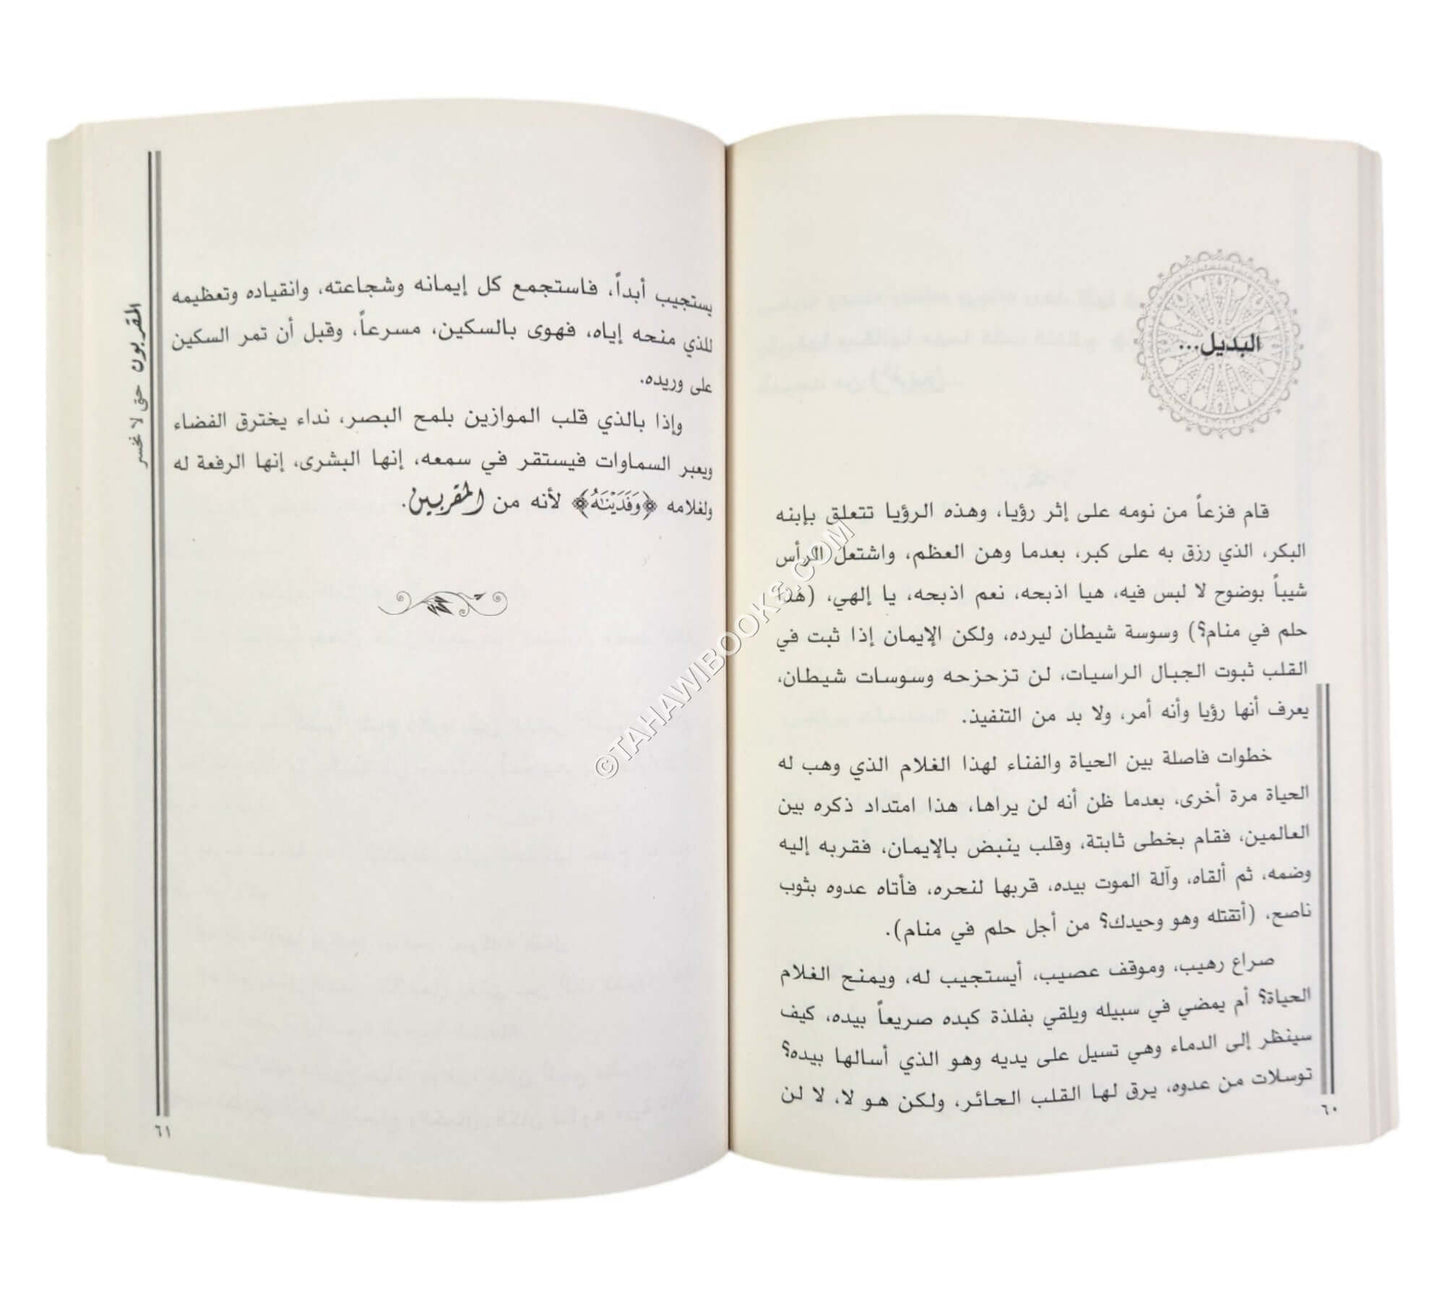 البديل...
قام فزعاً من نومه على إثر رؤيا، وهذه الرؤيا تتعلق بإبنه
البكر، الذي رزق به على كبر، بعدما وهن العظم، واشتعل الرأس
شيباً بوضوح لا لبس فيه، هيا اذبحه، نعم اذبحه، يا إلهي، (هذا
حلم في منام؟) وسوسة شيطان ليرده، ولكن الإيمان إذا ثبت في
القلب ثبوت الجبال الراسيات، لن تزحزحه وسوسات شيطان،
يعرف أنها رؤيا وأنه أمر، ولا بد من التنفيذ.
خطوات فاصلة بين الحياة والفناء لهذا الغلام الذي وهب له
الحياة مرة أخرى، بعدما ظن أنه لن يراها، هذا امتداد ذكره بين
العالمين، فقام بخطى ثابتة، وقلب ينبض بالإيمان، فقربه إليه
وضمه، ثم ألقاه، وآلة الموت بيده، قربها لنحره، فأتاه عدوه بثوب
ناصح، (أتقتله وهو وحيدك؟ من أجل حلم في منام).
صراع رهيب، وموقف عصيب، أيستجيب له، ويمنح الغلام
الحياة؟ أم يمضي في سبيله ويلقي بفلذة كبده صريعاً بيده، كيف
سينظر إلى الدماء وهي تسيل على يديه وهو الذي أسالها بيده؟
توسلات من عدوه، يرق لها القلب الحائر، ولكن هو لا، لا لن
٦٠
يستجيب أبداً، فاستجمع كل إيمانه وشجاعته، وانقياده وتعظيمه
للذي منحه إياه، فهوى بالسكين، مسرعاً، وقبل أن تمر السكين
على وريده.
وإذا بالذي قلب الموازين بلمح البصر، نداء يخترق الفضاء
ويعبر السماوات فيستقر في سمعه، إنها البشرى، إنها الرفعة له
ولغلامه ﴿وَفَدَيْنَاهُ﴾ لأنه من المقربين.
المقربون حتى لا نخسر
٦١
©TAHAWIBOOKS.COM